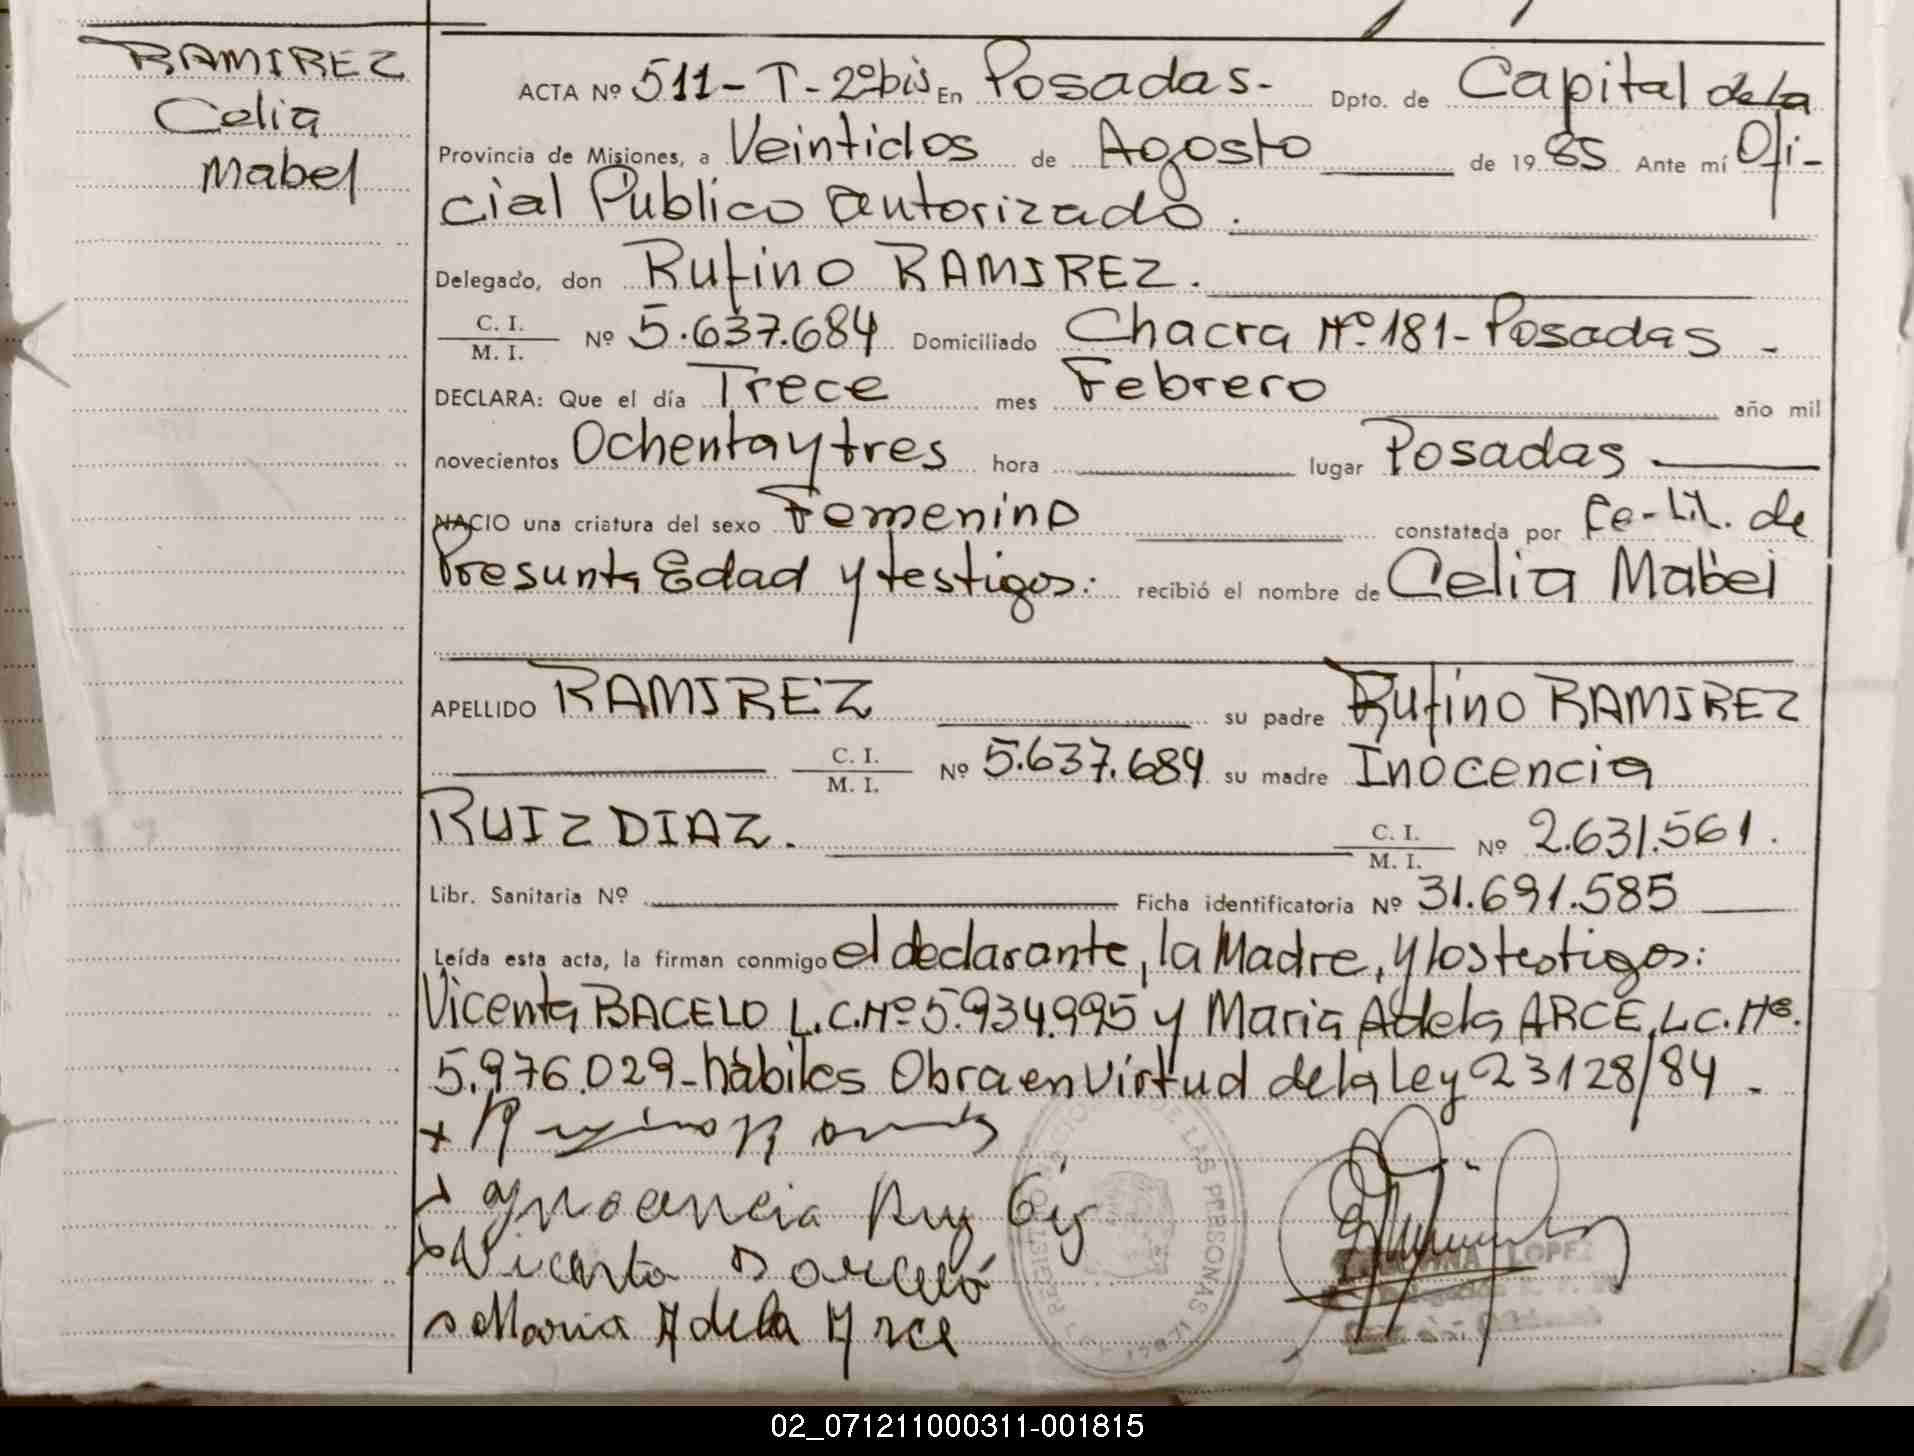 RAMIREZ
Celia
Mabel
ACTA Nº 511-T-2ºbis En Posadas- Dpto. de Capital de la
Provincia de Misiones, a Veintidos de Agosto de 1985 Ante mí Ofi-
cial Público autorizado.
Delegado, don Rufino RAMIREZ.
C. I.
M. I. Nº 5.637.684 Domiciliado Chacra Nº 181-Posadas-
DECLARA: Que el día Trece mes Febrero año mil
novecientos Ochenta y tres hora lugar Posadas
NACIO una criatura del sexo Femenino constatada por Ce-Lit. de
Presunta Edad y testigos: recibió el nombre de Celia Mabel
APELLIDO RAMIREZ su padre Rufino RAMIREZ
C. I.
M. I. Nº 5.637.684 su madre Inocencia
RUIZ DIAZ. C. I.
M. I. Nº 2.631.561.
Libr. Sanitaria Nº Ficha identificatoria Nº 31.691.585
Leída esta acta, la firman conmigo el declarante, la Madre, y los testigos:
Vicenta BACELO L.C.Nº 5.934.995 y Maria Adela ARCE, L.C.Nº.
5.976.029-hábiles Obra en virtud de la Ley 23128/84.
Vicenta
Maria Adela Arce
REGISTRO DE LAS PERSONAS
LOPEZ
02_071211000311-001815